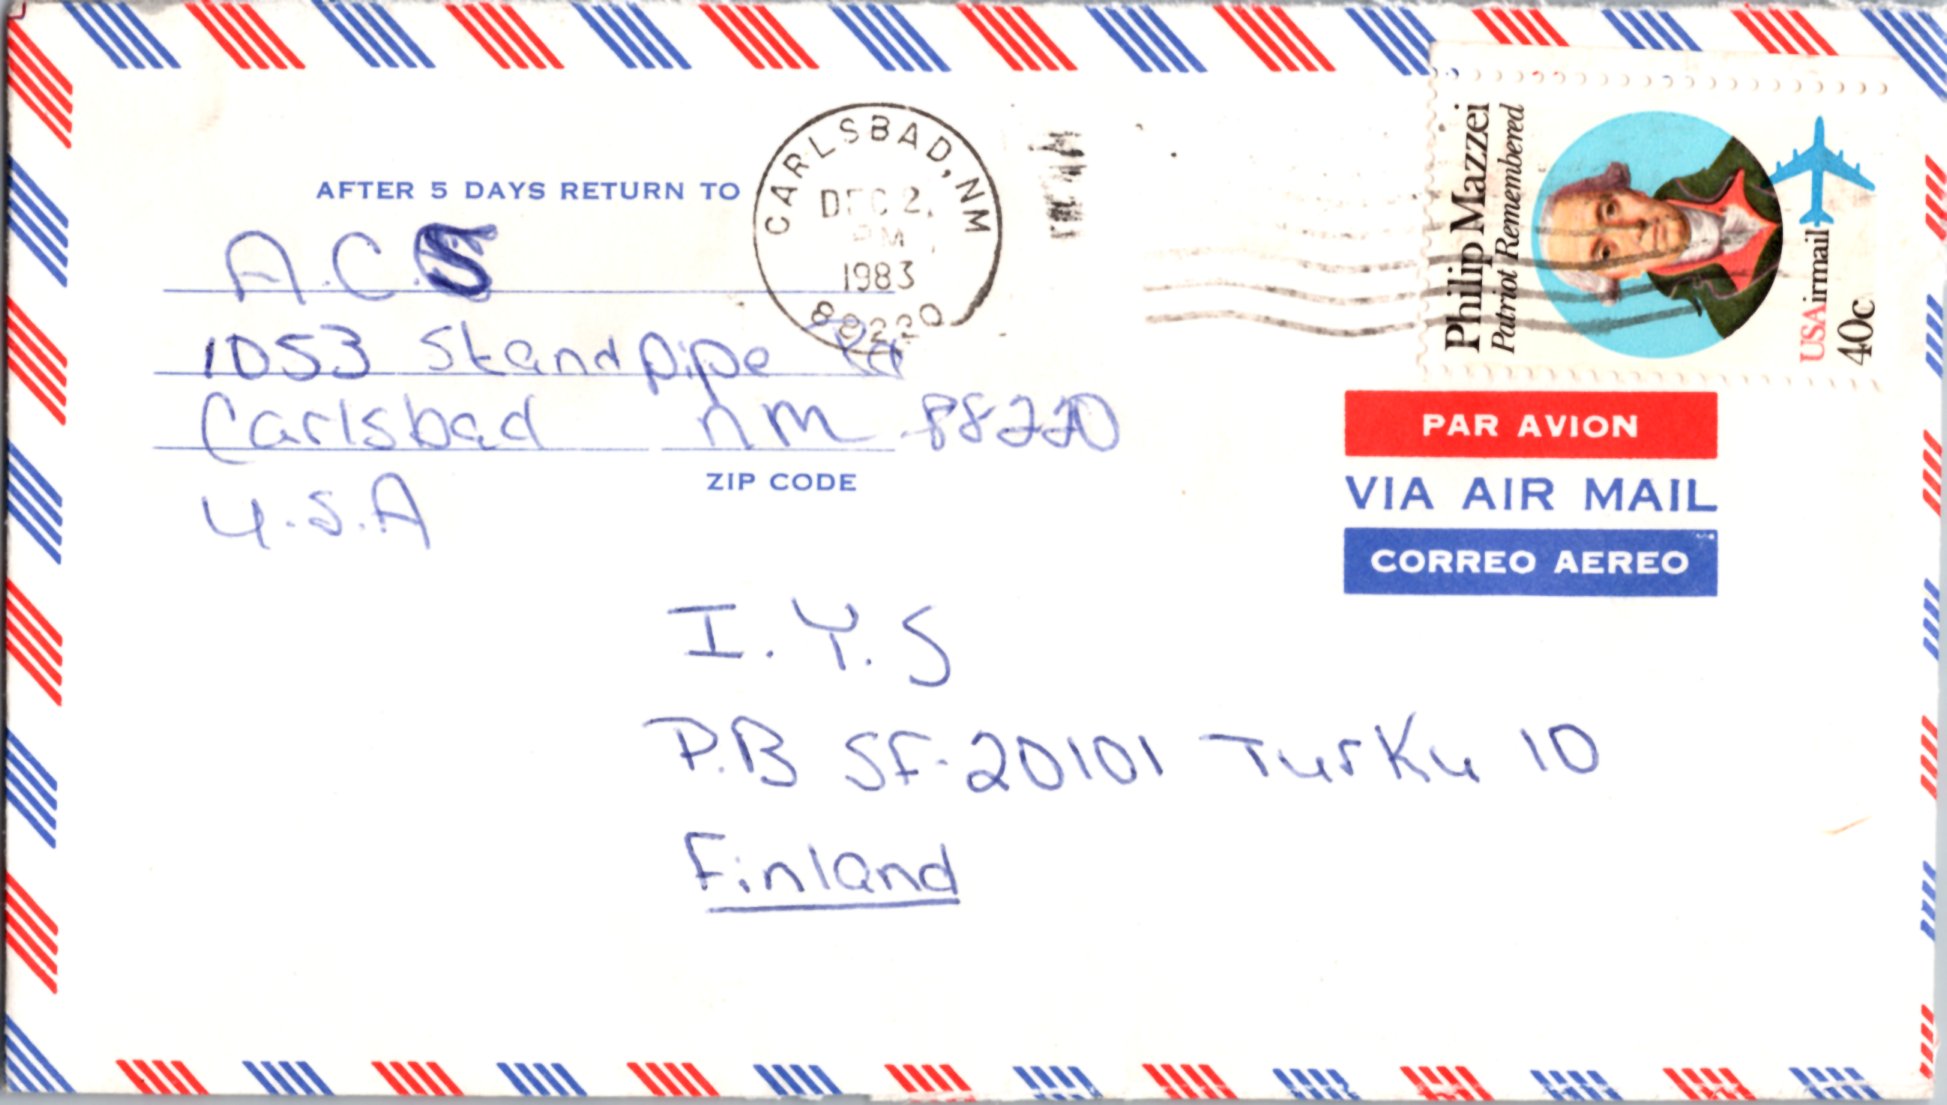 AFTER 5 DAYS RETURN TO
A.C.S
1053 Standpipe Rd
Carlsbad NM 88220
ZIP CODE
U.S.A
CARLSBAD, NM
DEC 2,
PM
1983
88220
Philip Mazzei
Patriot Remembered
USAirmail
40c
PAR AVION
VIA AIR MAIL
CORREO AEREO
I.Y.S
P.B SF-20101 Turku 10
Finland